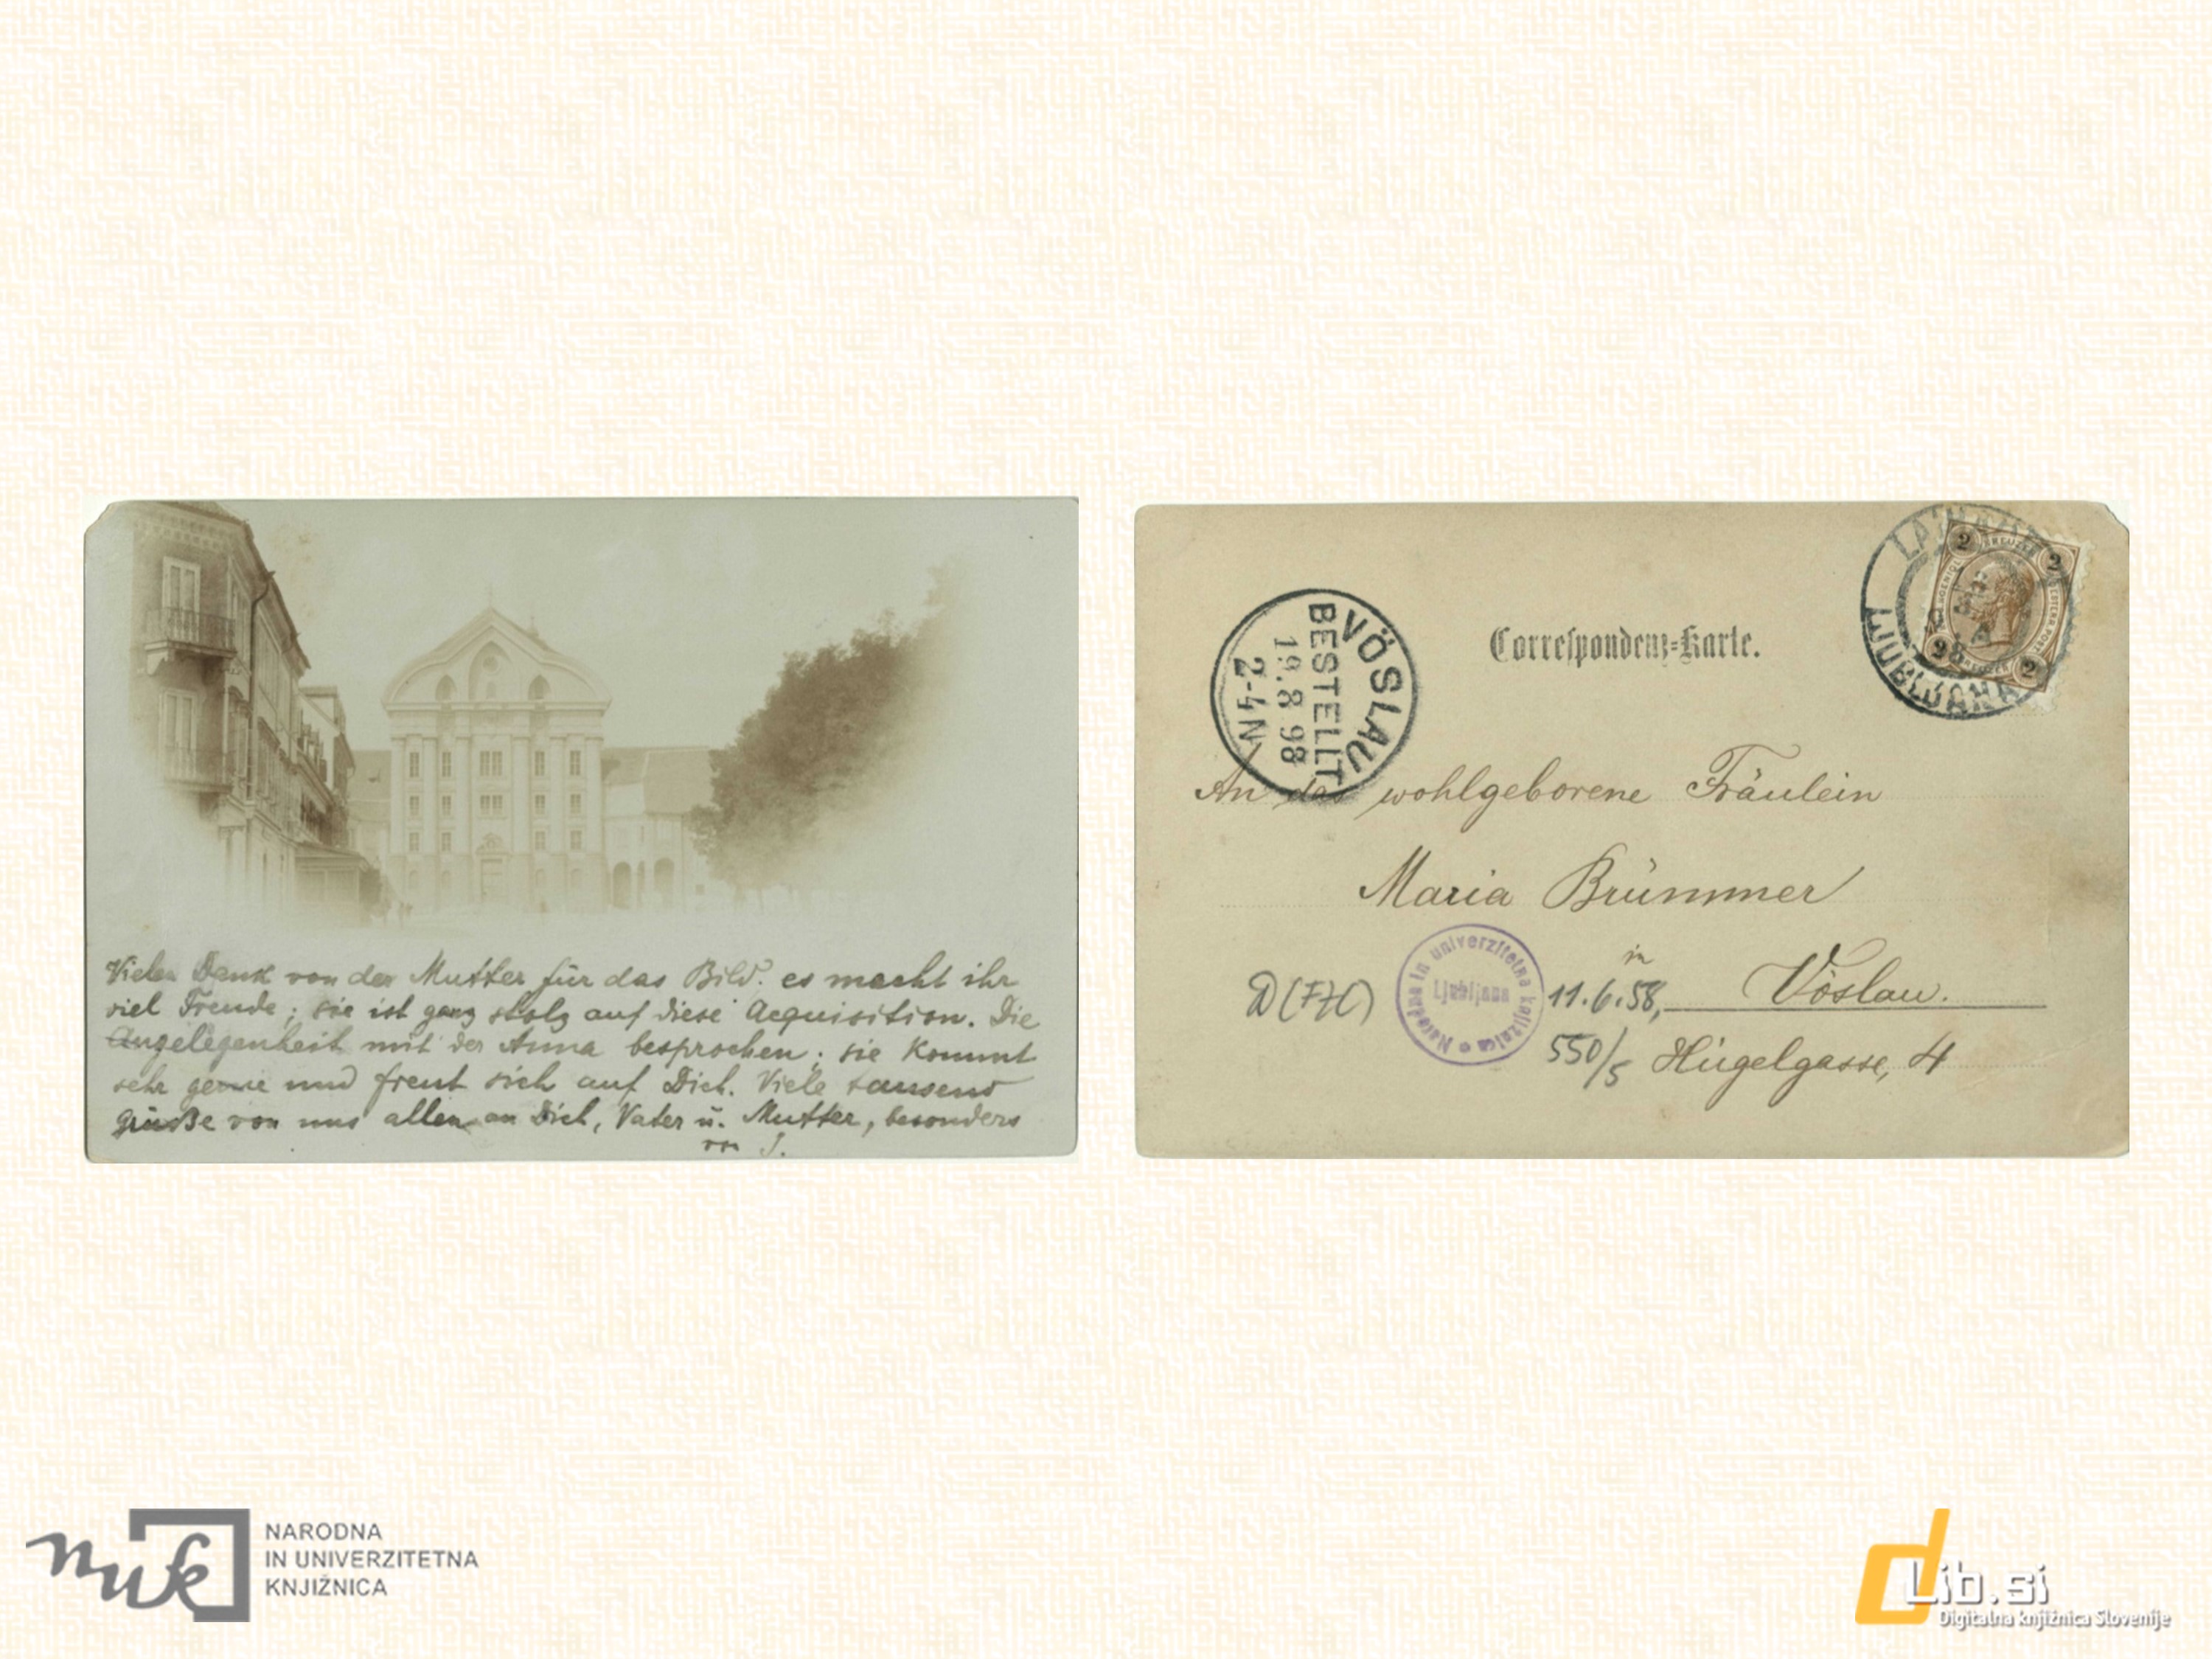 Vielen Dank von der Mutter für das Bild. es macht ihr
viel Freude; sie ist ganz stolz auf diese Acquisition. Die
Angelegenheit mit der Anna besprochen; sie kommt
sehr gerne und freut sich auf Dich. Viele tausend
Grüße von uns allen an Dich, Vater u. Mutter, besonders
von J.
VÖSLAU
BESTELLT
19.8 98
2-4N
Correspondenz-Karte.
LAIBACH
LJUBLJANA
2 KREUZER 2
2 KREUZER 2
An das wohlgeborene Fräulein
Maria Brümmer
in
D(FZC)
Narodna in univerzitetna knjižnica
Ljubljana
11.6.58,
Vöslau.
550/5 Hügelgasse, 4
nuk
NARODNA
IN UNIVERZITETNA
KNJIŽNICA
dLib.si
Digitalna knjižnica Slovenije